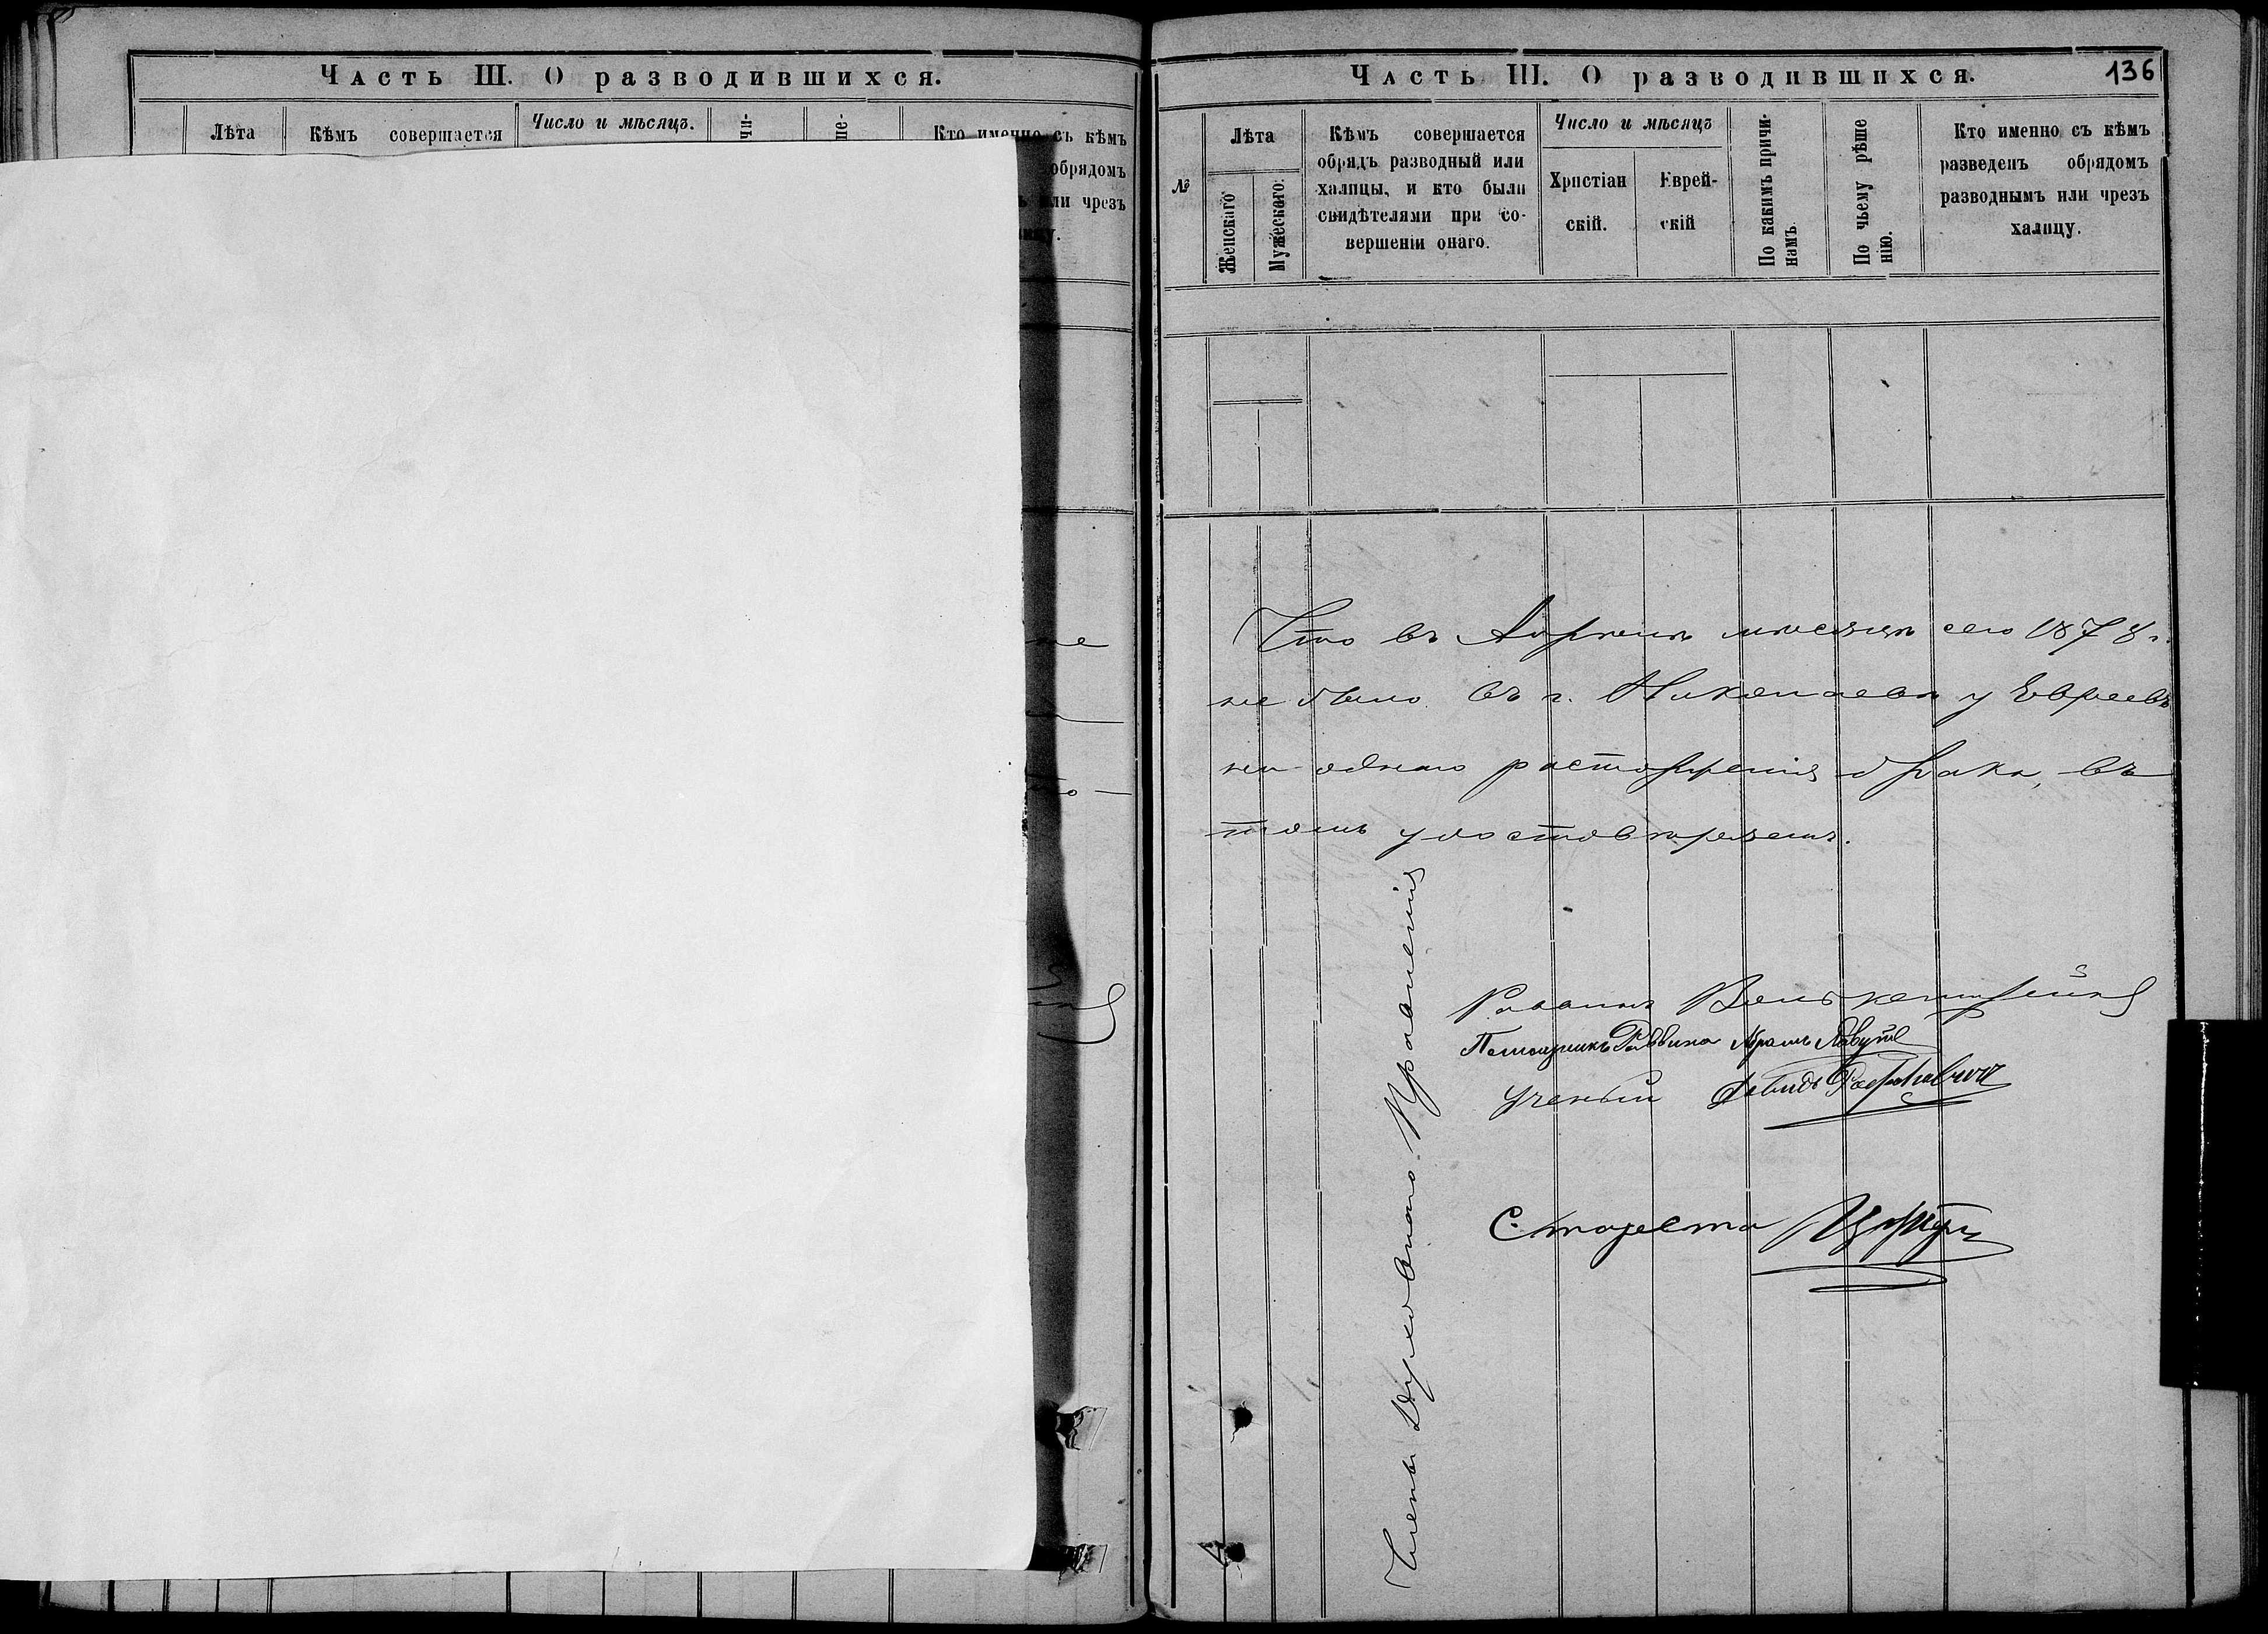 Часть III. О разводившихся.
Лѣта
Кѣмъ совершается
Число и мѣсяцъ.
чи-
ше-
Кто именно съ кѣмъ
обрядомъ
или чрезъ
не
Часть III. О разводившихся.
136
№
Лѣта
Женскаго
Мужескаго.
Кѣмъ совершается
обрядъ разводный или
халицы, и кто были
свидѣтелями при со-
вершеніи онаго.
Число и мѣсяцъ
Христіан
скій.
Еврей-
скій
По какимъ причи-
намъ.
По чьему рѣше
нію.
Кто именно съ кѣмъ
разведенъ обрядомъ
разводнымъ или чрезъ
халицу.
Что въ Апрѣлѣ мѣсяцѣ сего 1878 г.
не было въ г. Николаевѣ у Евреевъ
ни одного расторженія брака, въ
томъ удостовѣряемъ.
Члены Духовнаго Правленія
Раввинъ
Помощникъ Раввина Абрамъ
Ученый Давидъ Рафаловичъ
Староста